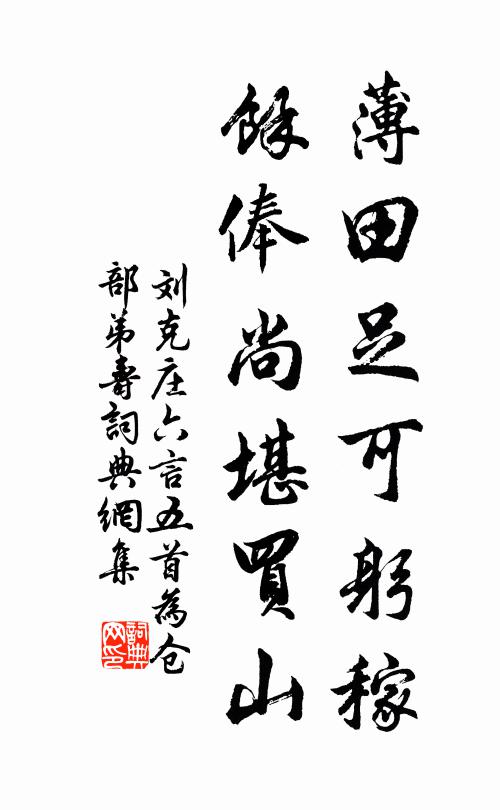 薄田足可躬稼
餘俸尚堪買山
刘克庄六言五首為仓
部弟壽詞典網集
詞典
网印